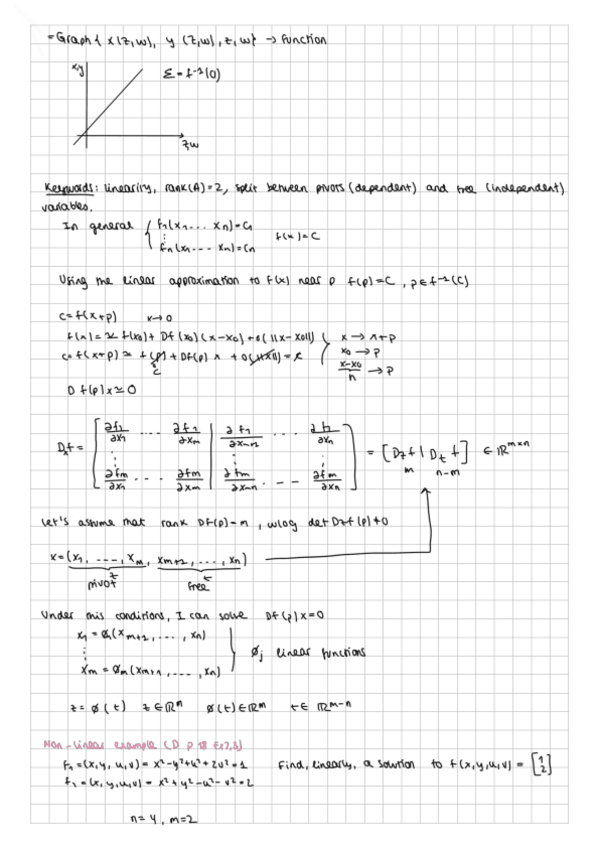 = Graph { x(z,w), y (z,w), z, w} → function
x,y
Σ = f⁻¹(0)
z,w
Keywords: linearity, rank(A)=2, split between pivots (dependent) and free (independent)
variables.
In general { F₁(x₁... xn)=C₁
⋮
fn(x₁--- xn)=Cn
f(x)=C
Using the linear approximation to f(x) near p f(p)=C , p∈f⁻¹(C)
C=f(x+p) x→0
f(x)=≃ f(x₀)+ Df(x₀)(x-x₀)+o(||x-x₀||)
C=f(x+p)≃ f(p)+Df(p) x + o(||x||)=c
c
x → x+p
x₀ → p
x-x₀/n → p
Df(p)x≃0
Dxf= [ ∂f₁/∂x₁ ... ∂f₁/∂xm | ∂f₁/∂xm+1 ... ∂f₁/∂xn
⋮ ⋮ ⋮ ⋮
∂fm/∂x₁ ... ∂fm/∂xm | ∂fm/∂xm+1 ... ∂fm/∂xn ] = [Dzf | Dt f] ∈ ℝᵐˣⁿ
m n-m
Let's assume that rank Df(p)=m , wlog det Dzf(p)≠0
x=(x₁, ---, xm, xm+1, ..., xn)
z t
pivot free
Under this conditions, I can solve Df(p)x=0
x₁ = ø₁(xm+1, ..., xn)
⋮
xm = øm(xm+1, ..., xn)
øj linear functions
z= ø(t) z∈ℝⁿ ø(t)∈ℝᵐ t∈ ℝᵐ⁻ⁿ
Non-linear example (D p 18 Ex7,3)
F₁=(x,y,u,v)= x²-y²+u²+2v²=1 Find, linearly, a solution to f(x,y,u,v) = [1 2]
f₂=(x,y,u,v)= x²+y²-u²-v²=2
n=4, m=2